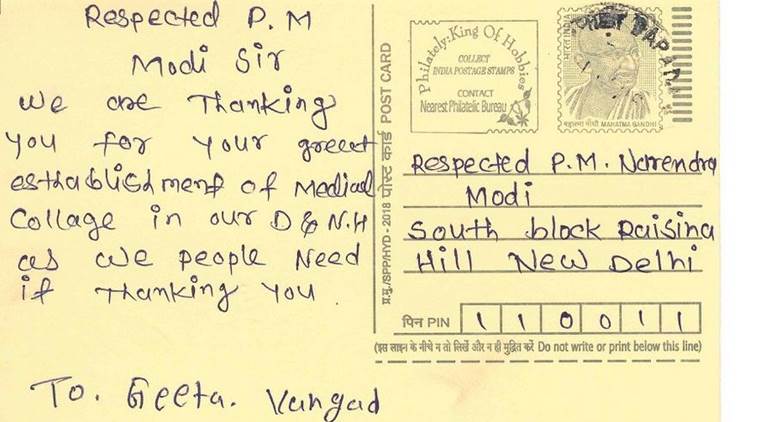 Respected P.M
Modi Sir
We are Thanking
you for your greeet
establishment of Medical
Collage in our D & N.H
as we people Need
it Thanking You.
To. Geeta. Vangad
प्र.मु./SPP/HYD - 2018 पोस्ट कार्ड POST CARD
Philately: King Of Hobbies
COLLECT
INDIA POSTAGE STAMPS
CONTACT
Nearest Philatelic Bureau
भारत INDIA
महात्मा गाँधी MAHATMA GANDHI
Respected P.M. Narendra
Modi
South block Raisina
Hill New Delhi
पिन PIN 110011
(इस लाइन के नीचे न तो लिखें और न ही मुद्रित करें Do not write or print below this line)